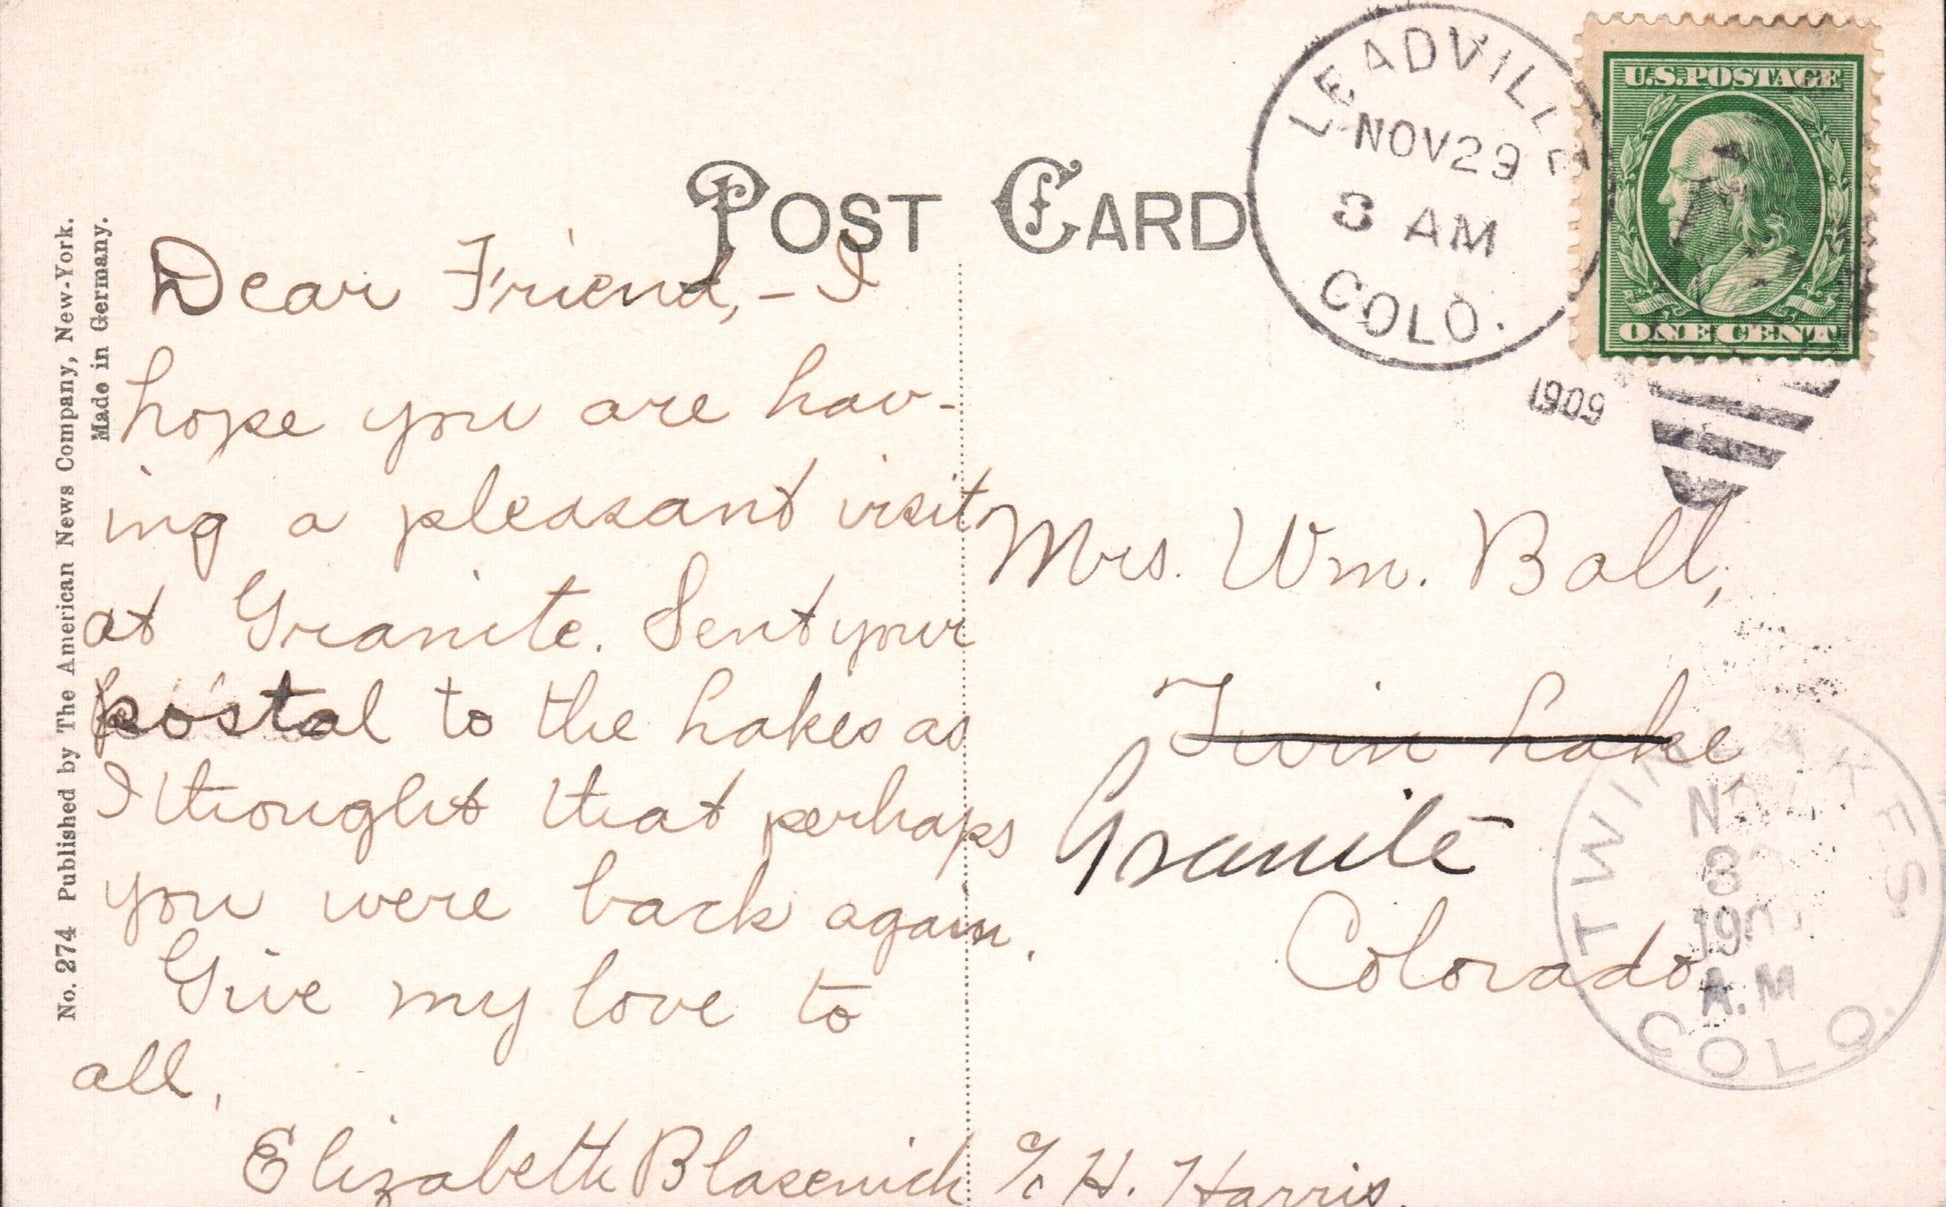 POST CARD
No. 274 Published by The American News Company, New-York.
Made in Germany.
LEADVILLE
NOV 29
8 AM
COLO.
1909
U.S. POSTAGE
ONE CENT
Dear Friend, - I
hope you are hav-
ing a pleasant visit
at Granite. Sent your
postal to the Lakes as
I thought that perhaps
you were back again.
Give my love to
all,
Elizabeth Blasenick % H. Harris.
Mrs. Wm. Ball,
Twin Lake,
Granite
Colorado
TWIN LAKES
A.M
COLO.